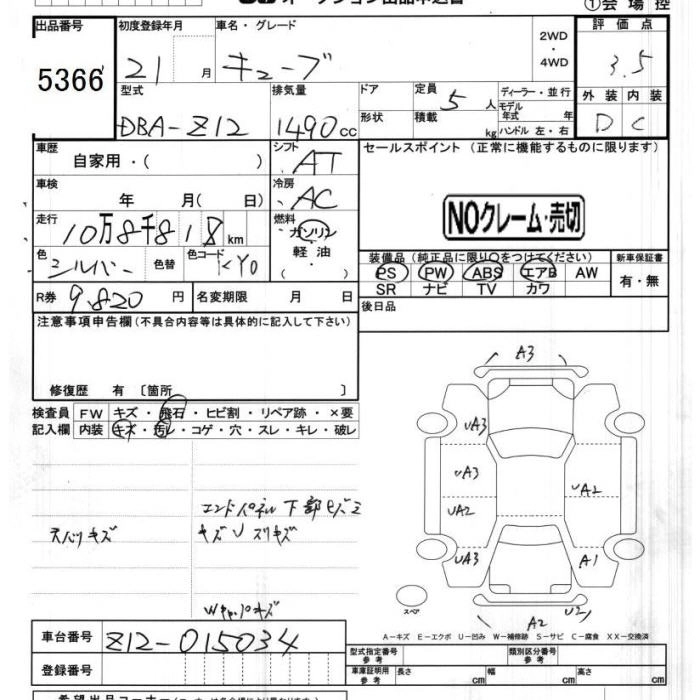 オークション出品申込書
①会場控
出品番号 初度登録年月 車名・グレード 2WD・4WD 評価点
5366 21 月 キューブ 3.5
型式 排気量 ドア 定員 5 人 ディーラー・並行 外装 内装
DBA-Z12 1490 cc 形状 積載 kg モデル年式 年 ハンドル 左・右 D C
車歴 自家用・( ) シフト AT セールスポイント (正常に機能するものに限ります)
車検 年 月( 日) 冷房 AC
NOクレーム・売切
走行 10万8千818 km 燃料 ガソリン・軽油・( )
色 シルバー 色替 色コード KY0 装備品 (純正品に限り○をつけてください) 新車保証書
PS PW ABS エアB AW 有・無
SR ナビ TV カワ
R券 9,820 円 名変期限 月 日 後日品
注意事項申告欄 (不具合内容等は具体的に記入して下さい)
修復歴 有 [箇所 ]
検査員 FW キズ・飛石・ヒビ割・リペア跡・×要
記入欄 内装 キズ・汚レ・コゲ・穴・スレ・キレ・破レ
A3
UA3
UA3
UA2 A2
UA3 A1
エンドパネル下部ヒズミ
天バリキズ キズU スリキズ
Wキャップキズ
スペア
A2 U2
A-キズ E-エクボ U-凹み W-補修跡 S-サビ C-腐食 XX-交換済
車台番号 Z12-015034
型式指定番号 参考 類別区分番号 参考
登録番号
車庫証明用 参考 長さ cm 幅 cm 高さ cm
希望出品コーナー